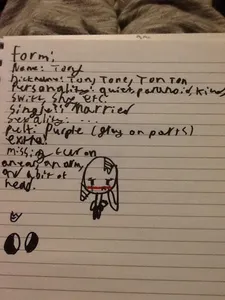 form:
Name: Tony
nickname: Tony Tone, Ton Ton
Personality: quiet, paranoid, kind,
swift, shy, etc.
single: Married
sexality: ...
pelt: Purple (grey on parts)
extra:
missing fur on
an ear, an arm,
and a bit of
head.